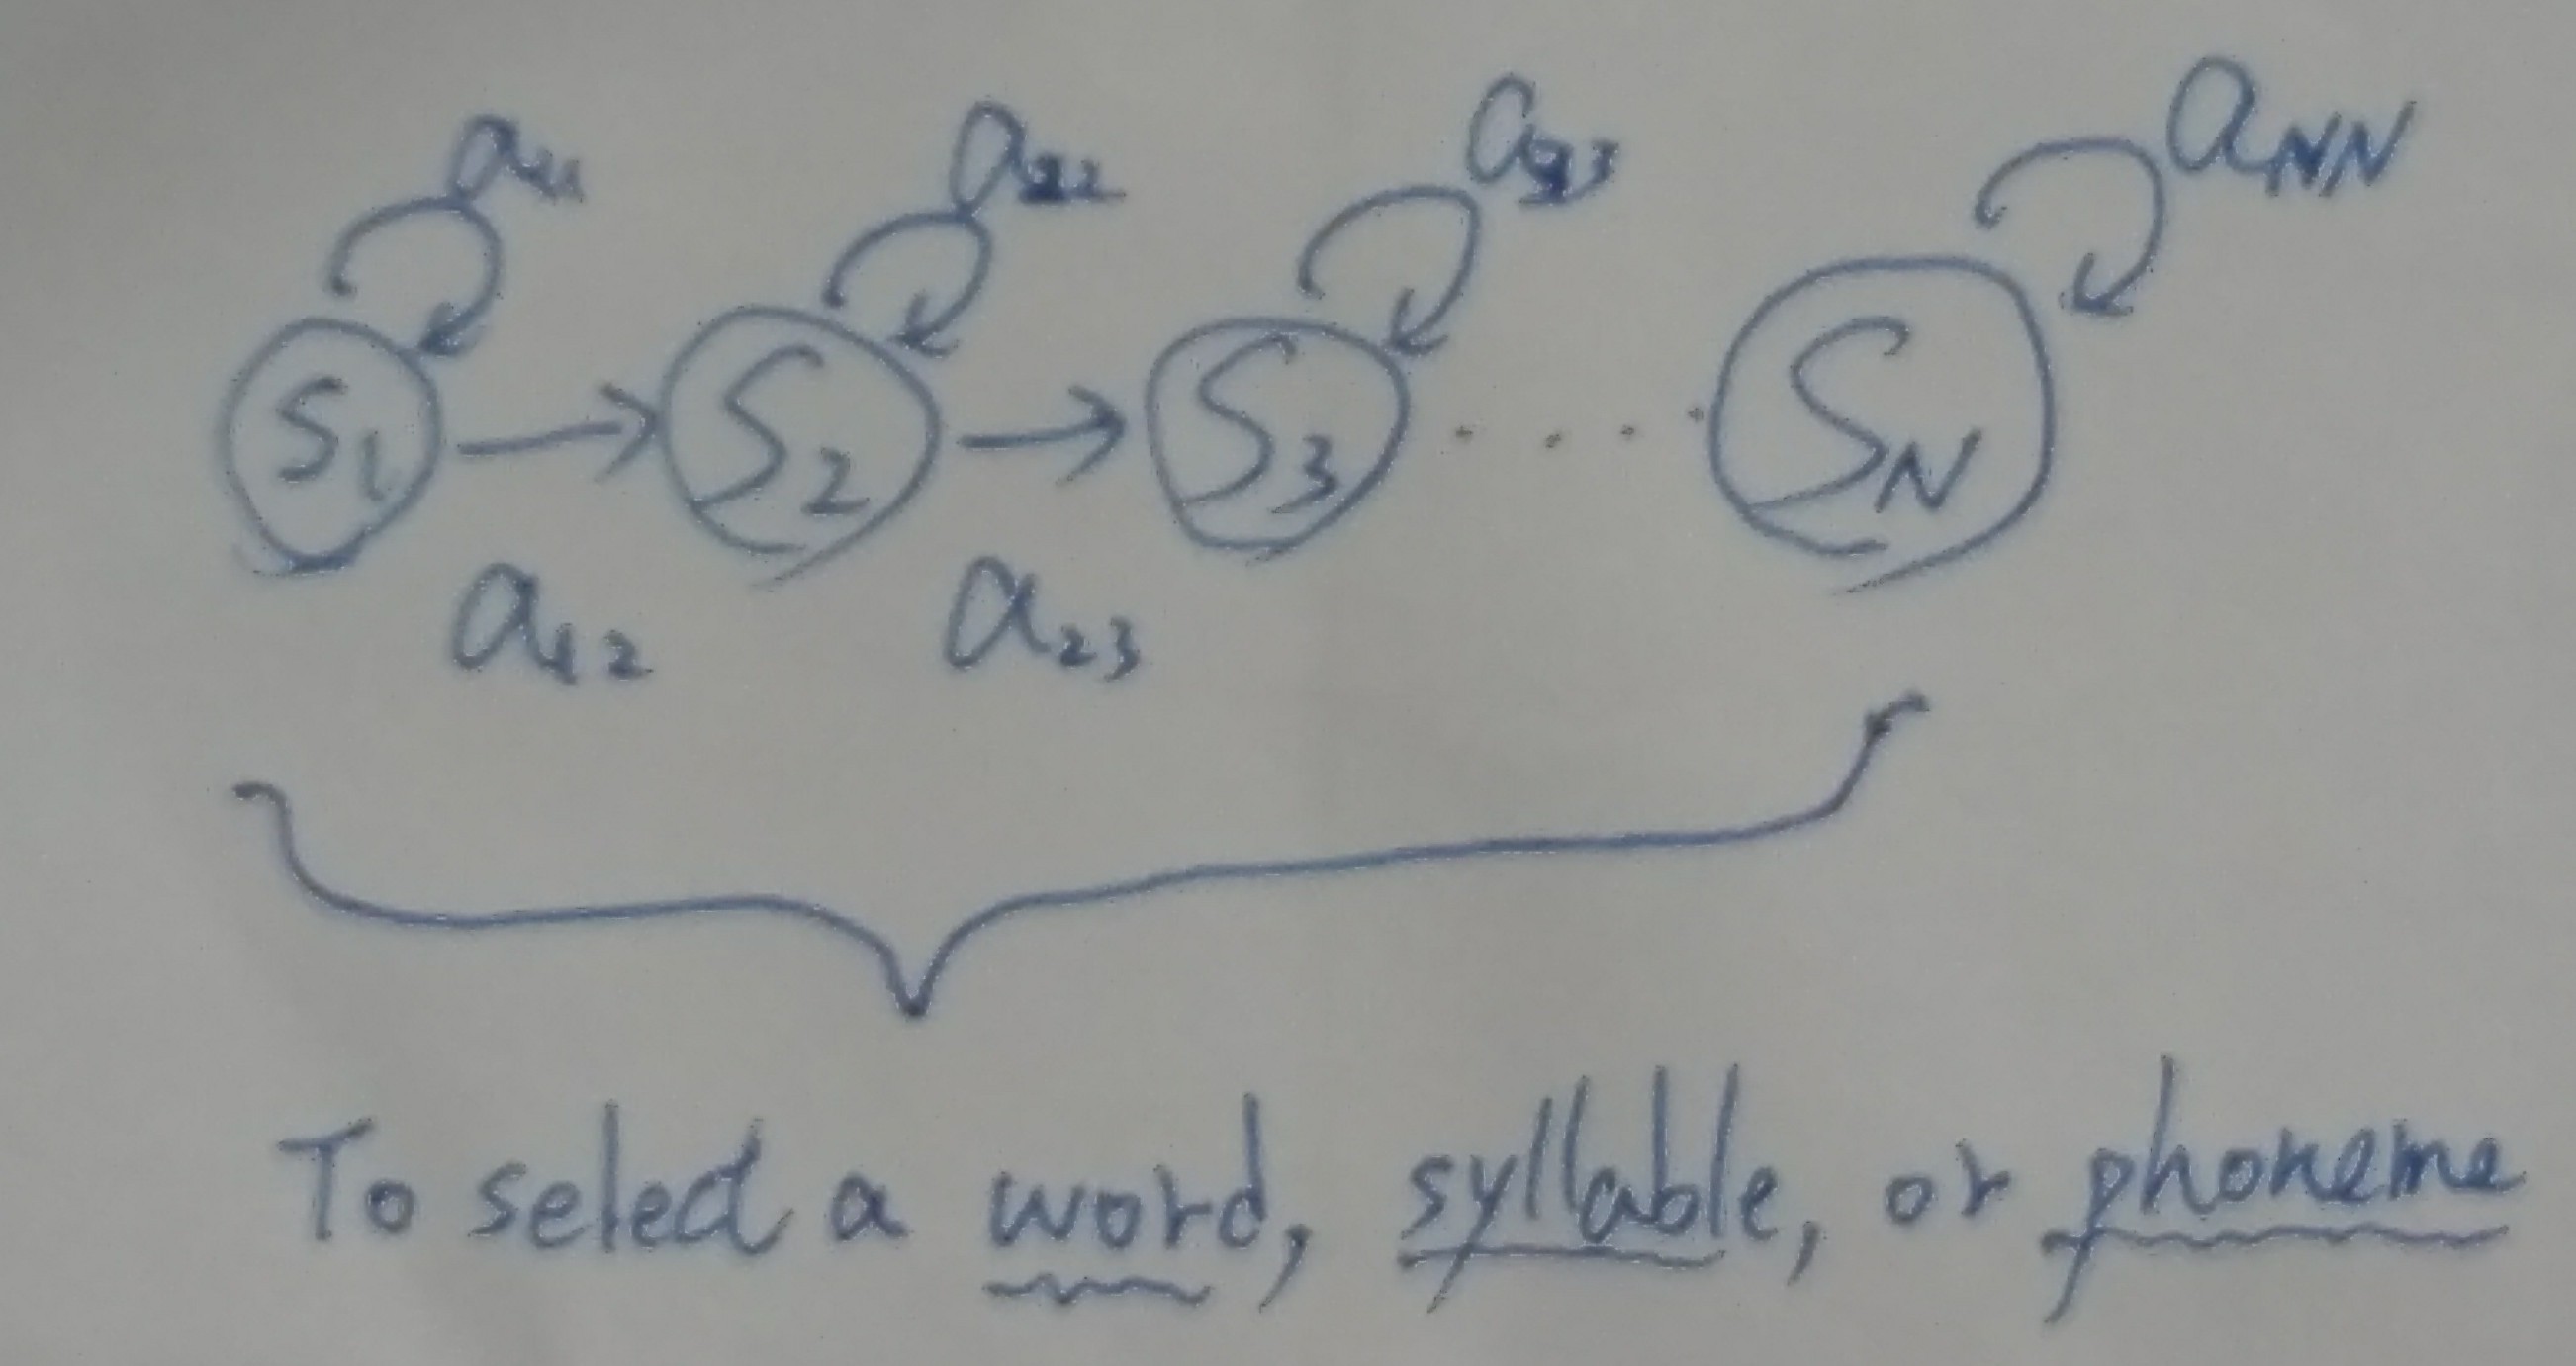 a11 a22 a33 aNN
S1 S2 S3 SN
a12 a23
To select a word, syllable, or phoneme